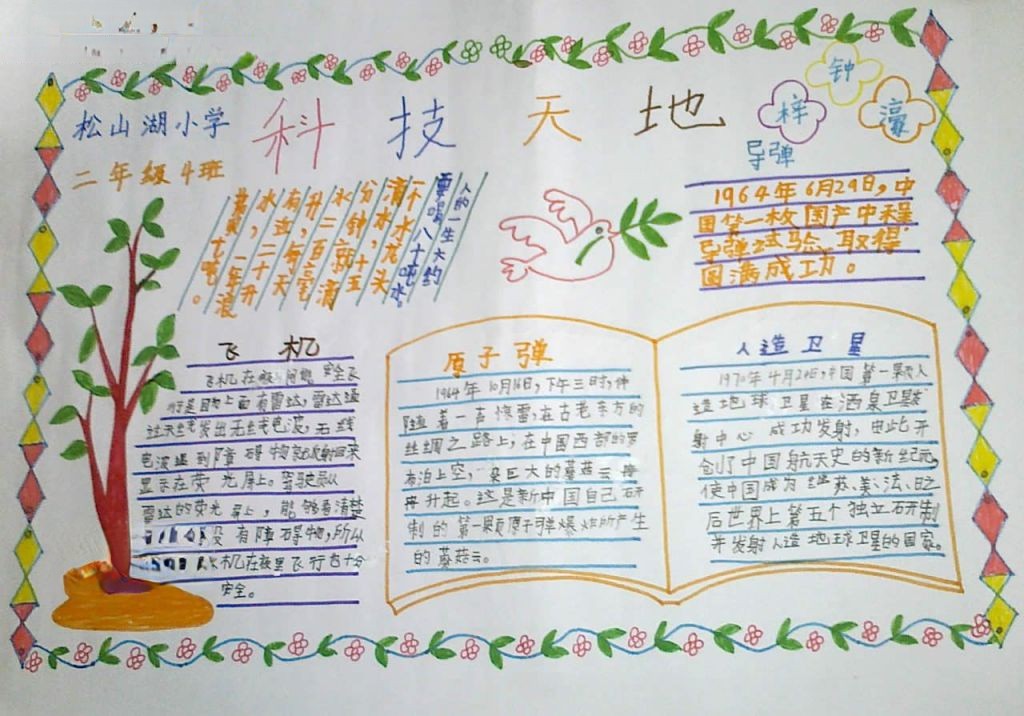 松山湖小学
二年级4班
科技天地
钟
梓
濠
导弹
1964年6月29日,中
国第一枚国产中程
导弹试验 取得
圆满成功。
人的一生大约
要喝八十吨水。
一个水龙头
滴水,十五
分钟就滴
水二百毫
升,每天
有这二十升
水,一年浪
费七吨。
飞机
飞机在夜间能安全飞
行是因为上面有雷达,雷达通
过天线发出无线电波,无线
电波遇到障碍物就反射回来
显示在荧光屏上。驾驶员从
雷达的荧光屏上,能够看清楚
没有障碍物,所以
飞机在夜里飞行也十分
安全。
原子弹
1964年10月16日,下午三时,伴
随着一声惊雷,在古老东方的
丝绸之路上,在中国西部的罗
布泊上空,一朵巨大的蘑菇云冉
冉升起。这是新中国自己研
制的第一颗原子弹爆炸所产生
的蘑菇云。
人造卫星
1970年4月24日,中国第一颗人
造地球卫星在酒泉卫星发
射中心 成功发射,由此开
创了中国航天史的新纪元,
使中国成为继苏、美、法、日之
后世界上第五个独立研制
并发射人造地球卫星的国家。